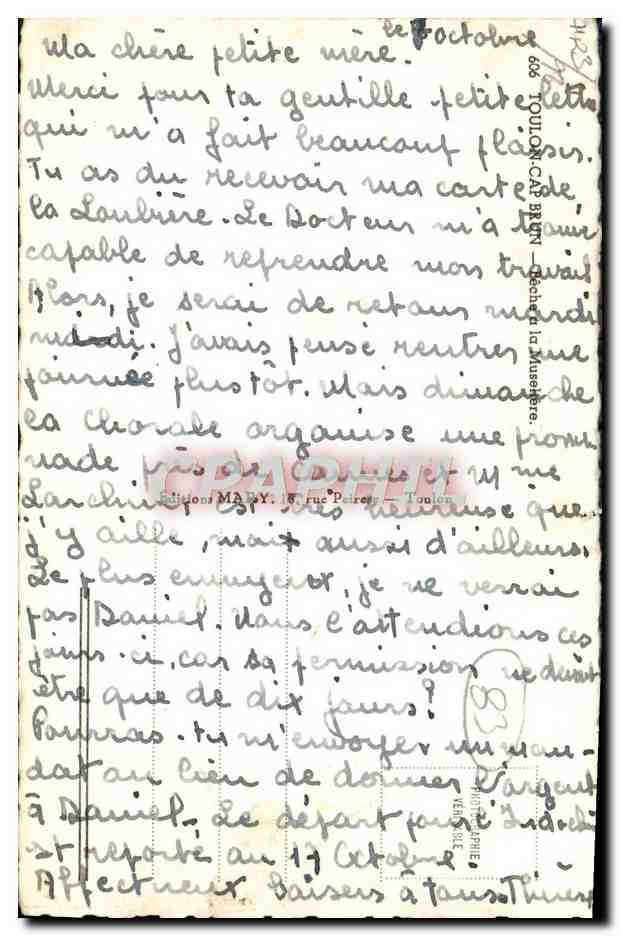 le octobre
Ma chère petite mère.
Merci pour ta gentille petite lettre
qui m'a fait beaucoup plaisir.
Tu as du recevoir ma carte de
la Loubière. Le Docteur m'a trouvé
capable de reprendre mon travail
Alors, je serai de retour mardi
midi. J'avais pensé rentrer une
journée plus tôt. Mais dimanche
la chorale organise une prome
nade près de Cannes et M me
est très heureuse que
j'y aille, moi aussi d'ailleurs.
Le plus ennuyeux, je ne verrai
pas Daniel. Nous l'attendions ces
jours-ci, car sa permission ne devait
être que de dix jours!
Pourras-tu m'envoyer un man-
dat au lieu de donner l'argent
à Daniel. Le départ pour l'Indochi
est reporté au 17 Octobre.
Affectueux baisers à tous. Thérèse
83
606 TOULON-CAP BRUN — Pêche à la Muselière.
Editions MARY. 18, rue Peiresc — Toulon
PHOTOGRAPHIE
VÉRITABLE
CPAPHIL